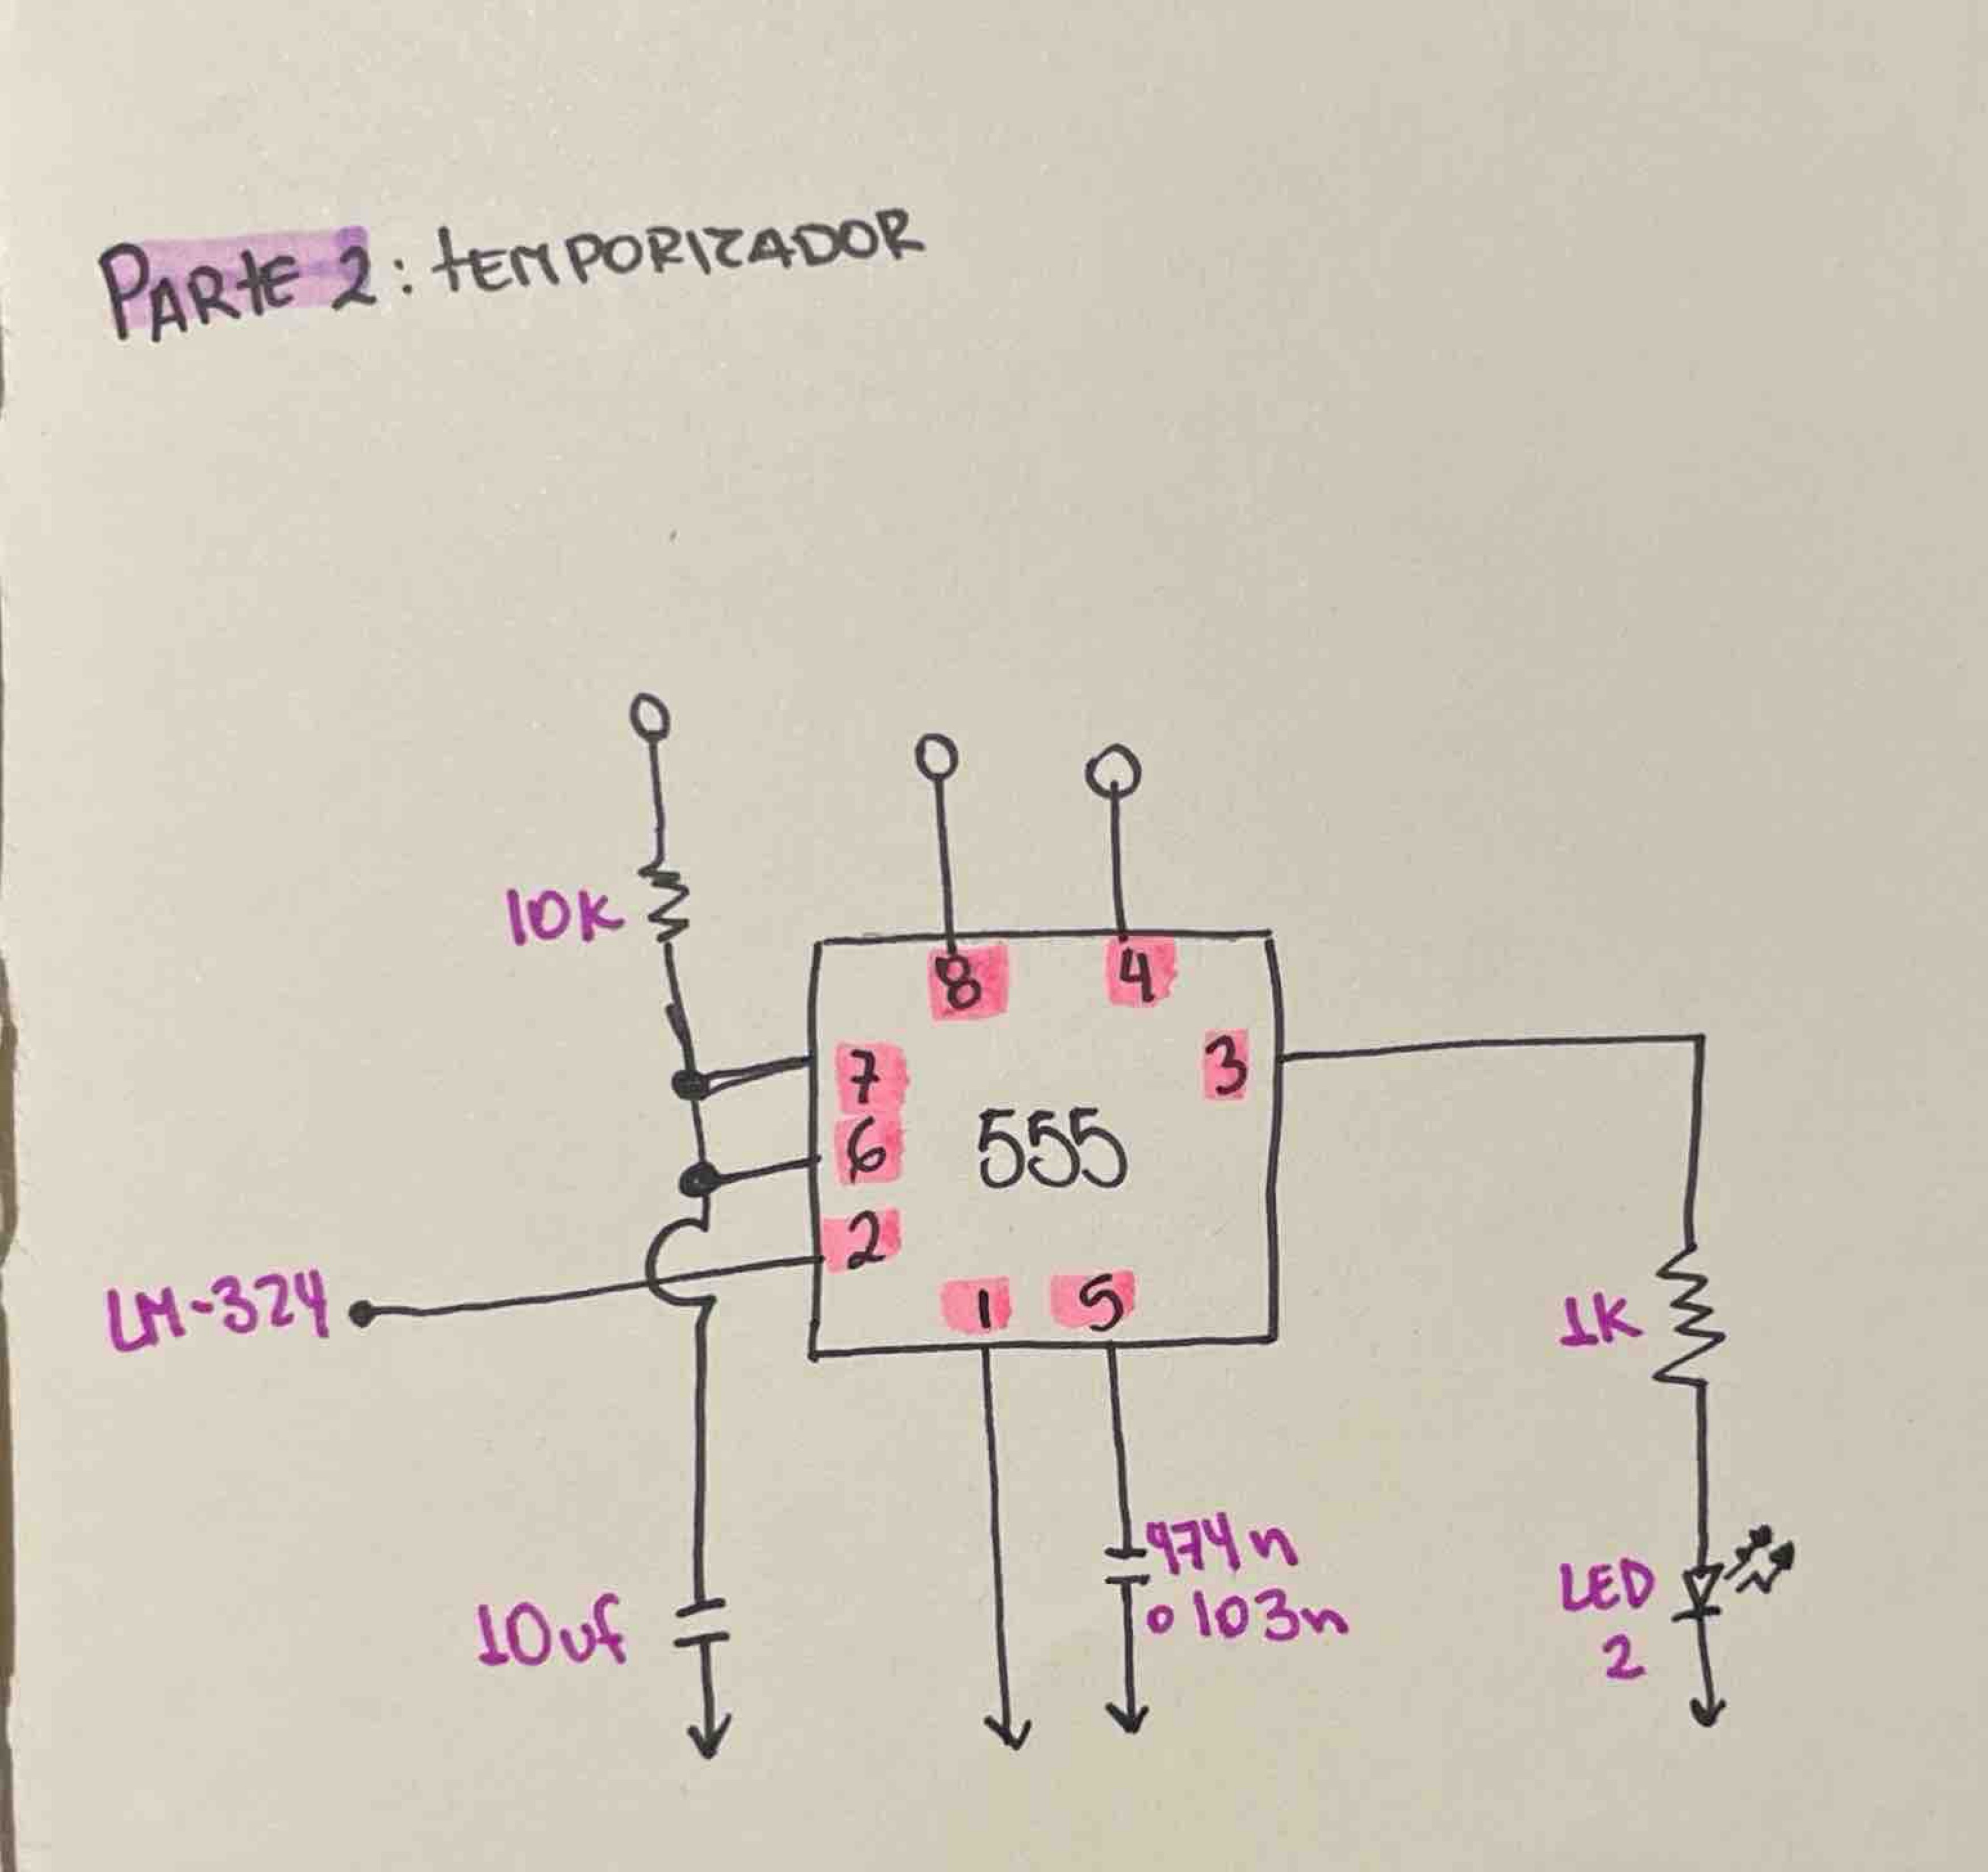 PARTE 2: TEMPORIZADOR
10K
8 4
7
3
6
555
2
LM-324
1 5
1K
974n
o 103n
LED
2
10uf